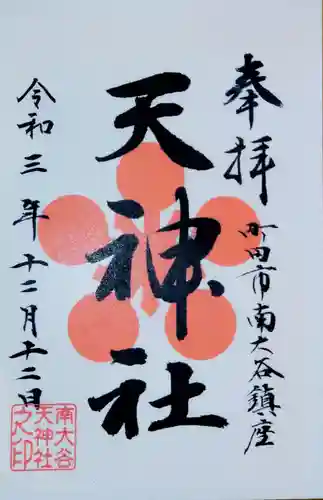 奉拝
町田市南大谷鎮座
天神社
令和三年十二月十二日
南大谷
天神社
之印